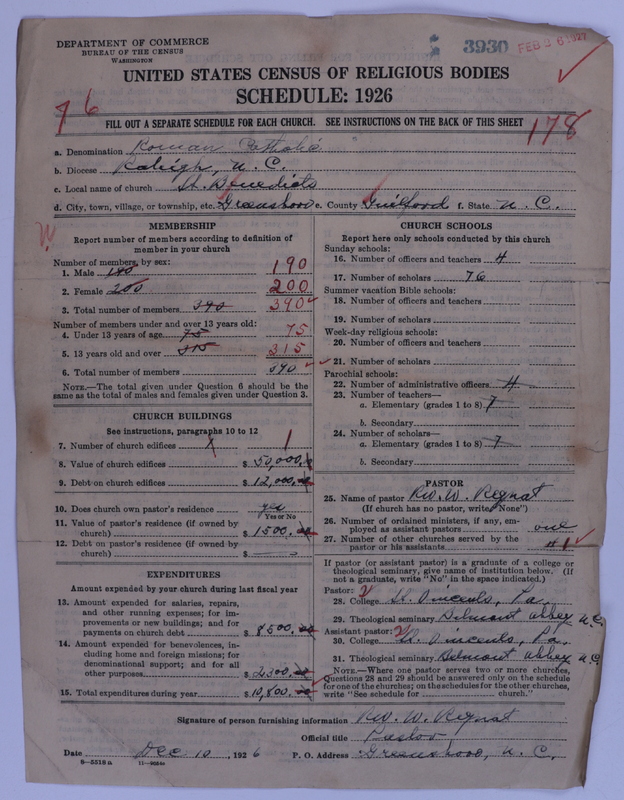 DEPARTMENT OF COMMERCE
BUREAU OF THE CENSUS
WASHINGTON
3930 FEB 26 1927
UNITED STATES CENSUS OF RELIGIOUS BODIES
SCHEDULE: 1926
76
FILL OUT A SEPARATE SCHEDULE FOR EACH CHURCH. SEE INSTRUCTIONS ON THE BACK OF THIS SHEET
178
a. Denomination Roman Catholic
b. Diocese Raleigh, N. C.
c. Local name of church St. Benedicts
d. City, town, village, or township, etc. Greensboro e. County Guilford f. State N. C.
MEMBERSHIP
Report number of members according to definition of
member in your church
Number of members, by sex:
1. Male 190
2. Female 200 200
3. Total number of members 390 390
Number of members under and over 13 years old:
4. Under 13 years of age 75 75
5. 13 years old and over 315 315
6. Total number of members 390
NOTE.—The total given under Question 6 should be
same as the total of males and females given under Question 3.
CHURCH BUILDINGS
See instructions, paragraphs 10 to 12
7. Number of church edifices 1 1
8. Value of church edifices $ 50,000.
9. Debt on church edifices $ 12,000.
10. Does church own pastor's residence yes
Yes or No
11. Value of pastor's residence (if owned by
church) $ 1500.
12. Debt on pastor's residence (if owned by
church) $
EXPENDITURES
Amount expended by your church during last fiscal year
13. Amount expended for salaries, repairs,
and other running expenses; for im-
provements or new buildings; and for
payments on church debt $ 8500.
14. Amount expended for benevolences, in-
cluding home and foreign missions; for
denominational support; and for all
other purposes $ 2300.
15. Total expenditures during year $ 10,800.
CHURCH SCHOOLS
Report here only schools conducted by this church
Sunday schools:
16. Number of officers and teachers 4
17. Number of scholars 76
Summer vacation Bible schools:
18. Number of officers and teachers
19. Number of scholars
Week-day religious schools:
20. Number of officers and teachers
21. Number of scholars
Parochial schools:
22. Number of administrative officers 4
23. Number of teachers—
a. Elementary (grades 1 to 8) 7
b. Secondary
24. Number of scholars—
a. Elementary (grades 1 to 8) 7
b. Secondary
PASTOR
25. Name of pastor Rev. W. Regnat
(If church has no pastor, write "None")
26. Number of ordained ministers, if any, em-
ployed as assistant pastors one
27. Number of other churches served by the
pastor or his assistants
If pastor (or assistant pastor) is a graduate of a college or
theological seminary, give name of institution below. (If
not a graduate, write "No" in the space indicated.)
Pastor:
28. College St. Vincents, Pa.
29. Theological seminary Belmont Abbey N.C.
Assistant pastor:
30. College St. Vincents, Pa.
31. Theological seminary Belmont Abbey N.C.
NOTE.—Where one pastor serves two or more churches,
Questions 28 and 29 should be answered only on the schedule
for one of the churches; on the schedules for the other churches,
write "See schedule for church."
Signature of person furnishing information Rev. W. Regnat
Official title Pastor
Date Dec 10, 1926 P. O. Address Greensboro, N. C.
8—5518a